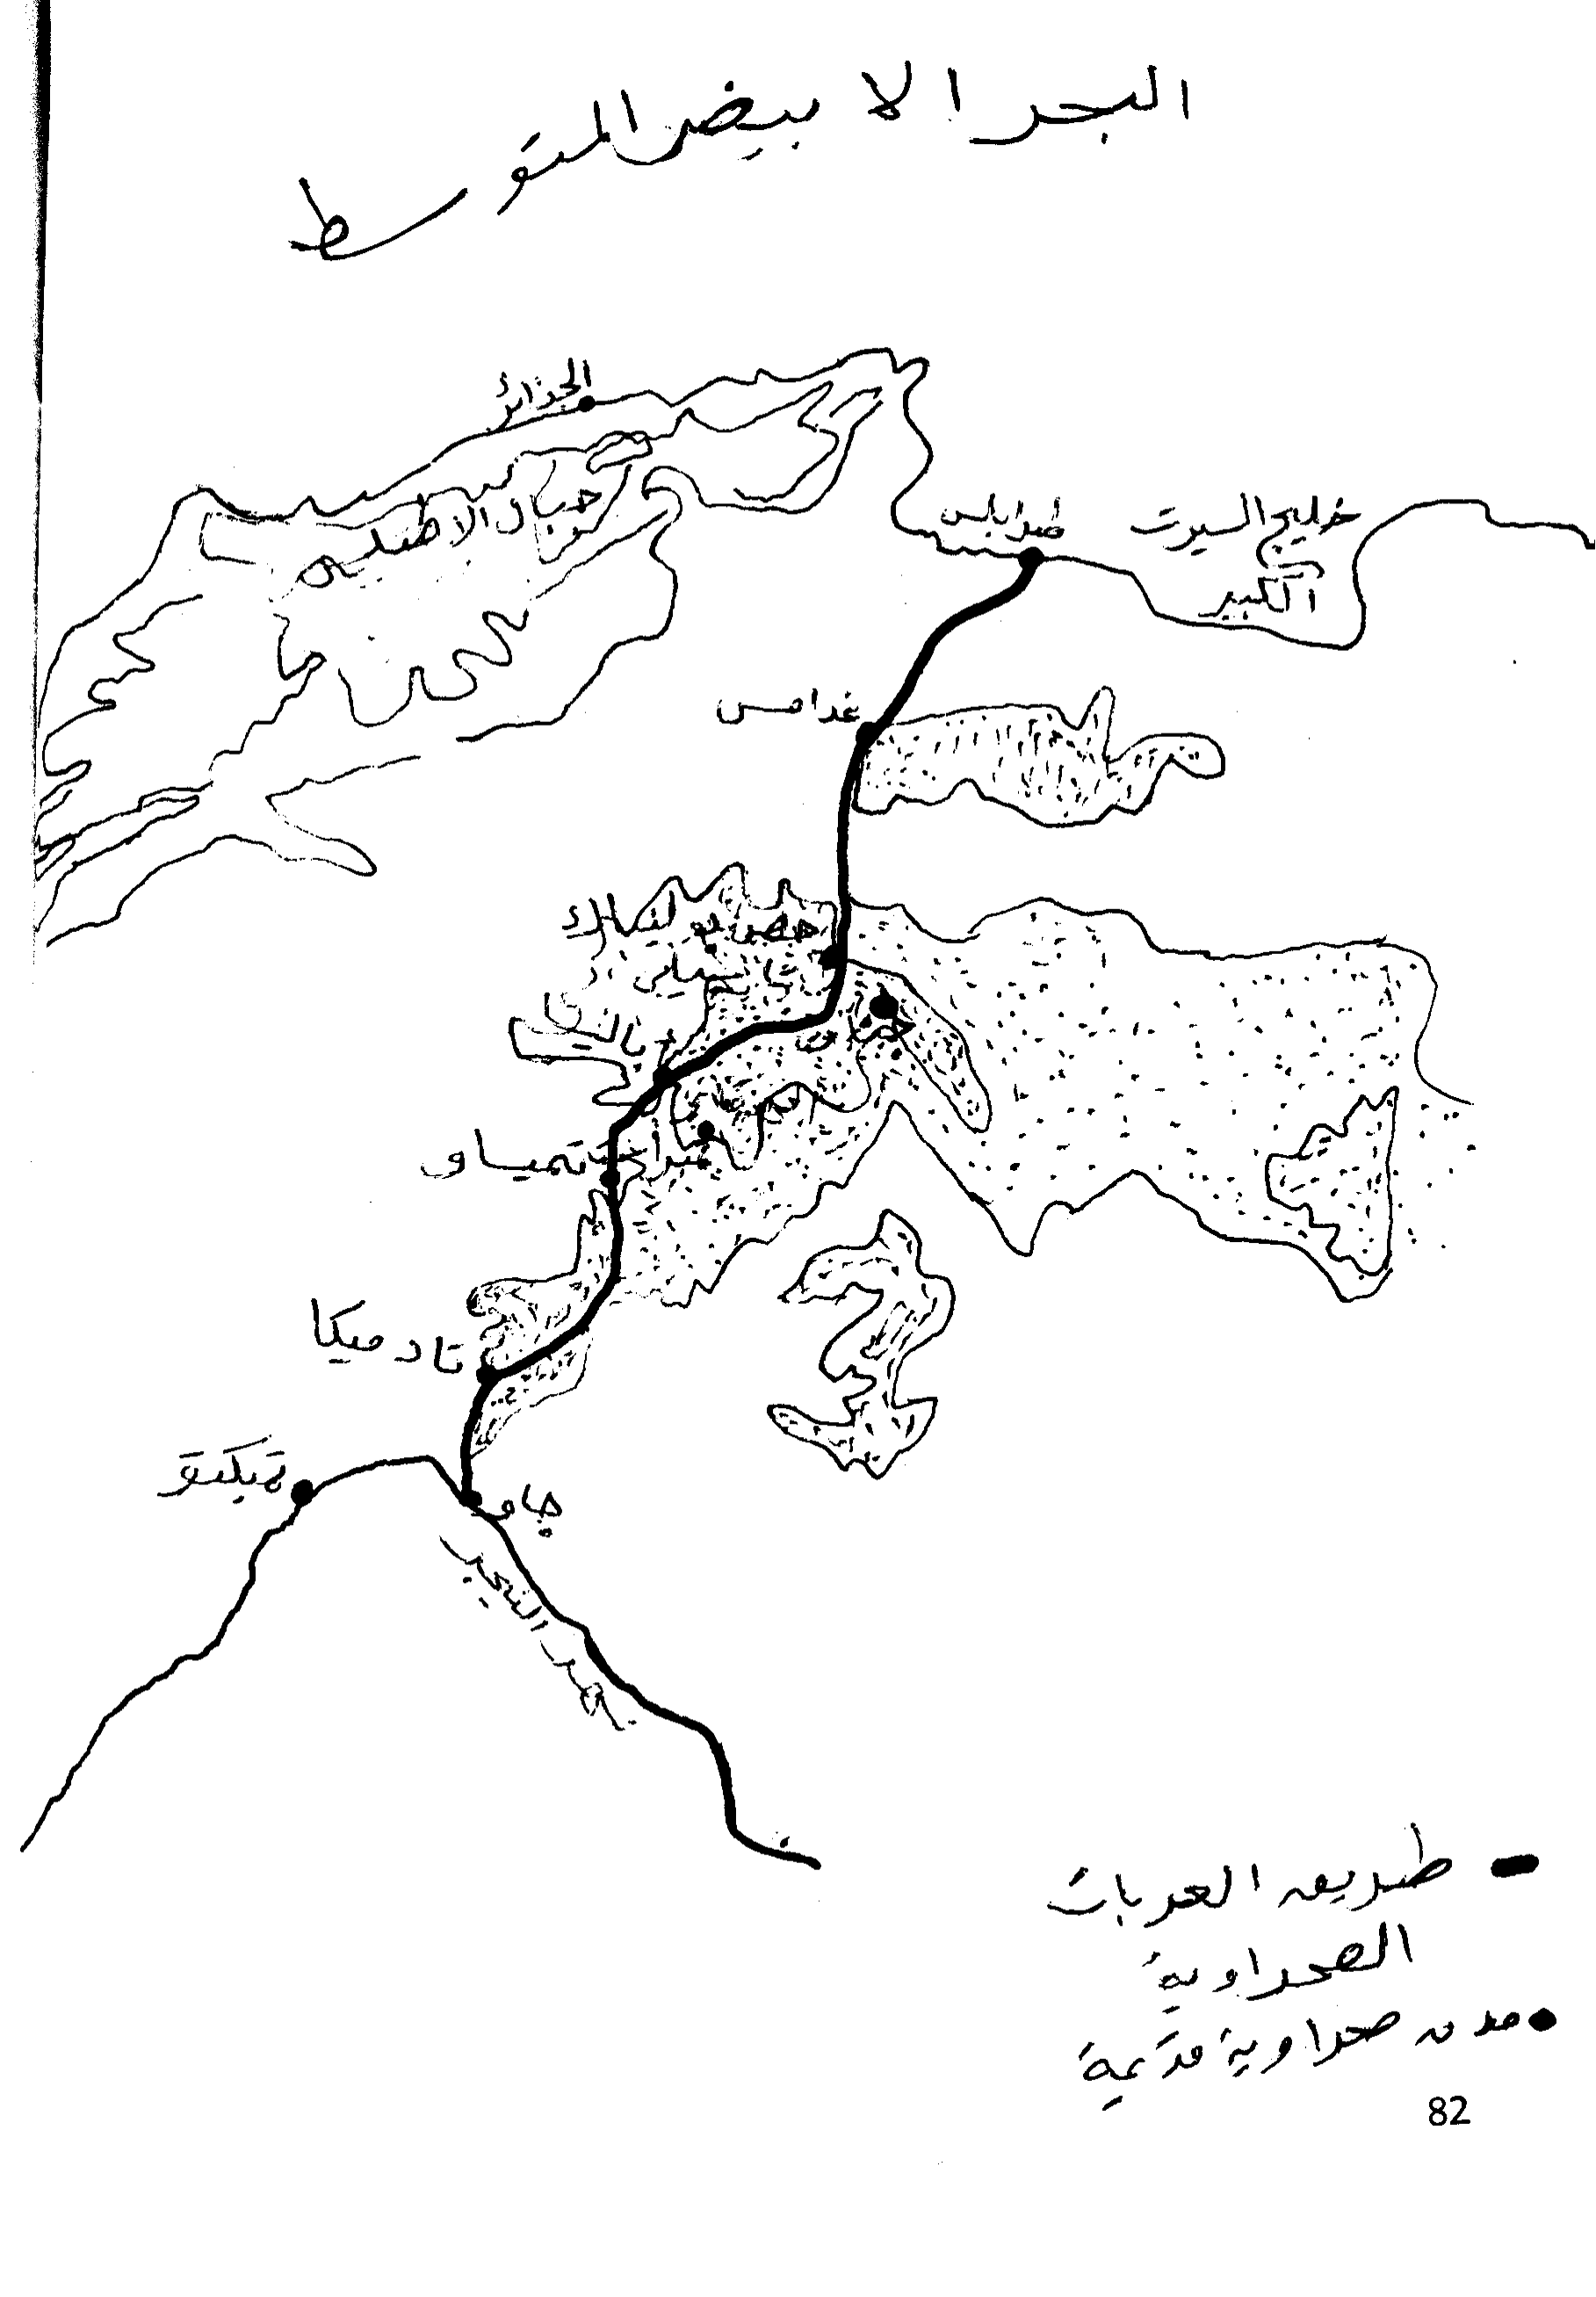 البحر الابيض المتوسط
الجزائر
جبال الاطلس
طرابلس
خليج السيرت
الكبير
غدامس
حصن بولنياك
جبارن
تميساو
تادميكا
تمبكتو
جاو
نهر النيجر
طريق العربات
الصحراوية
مدن صحراوية قديمة
82